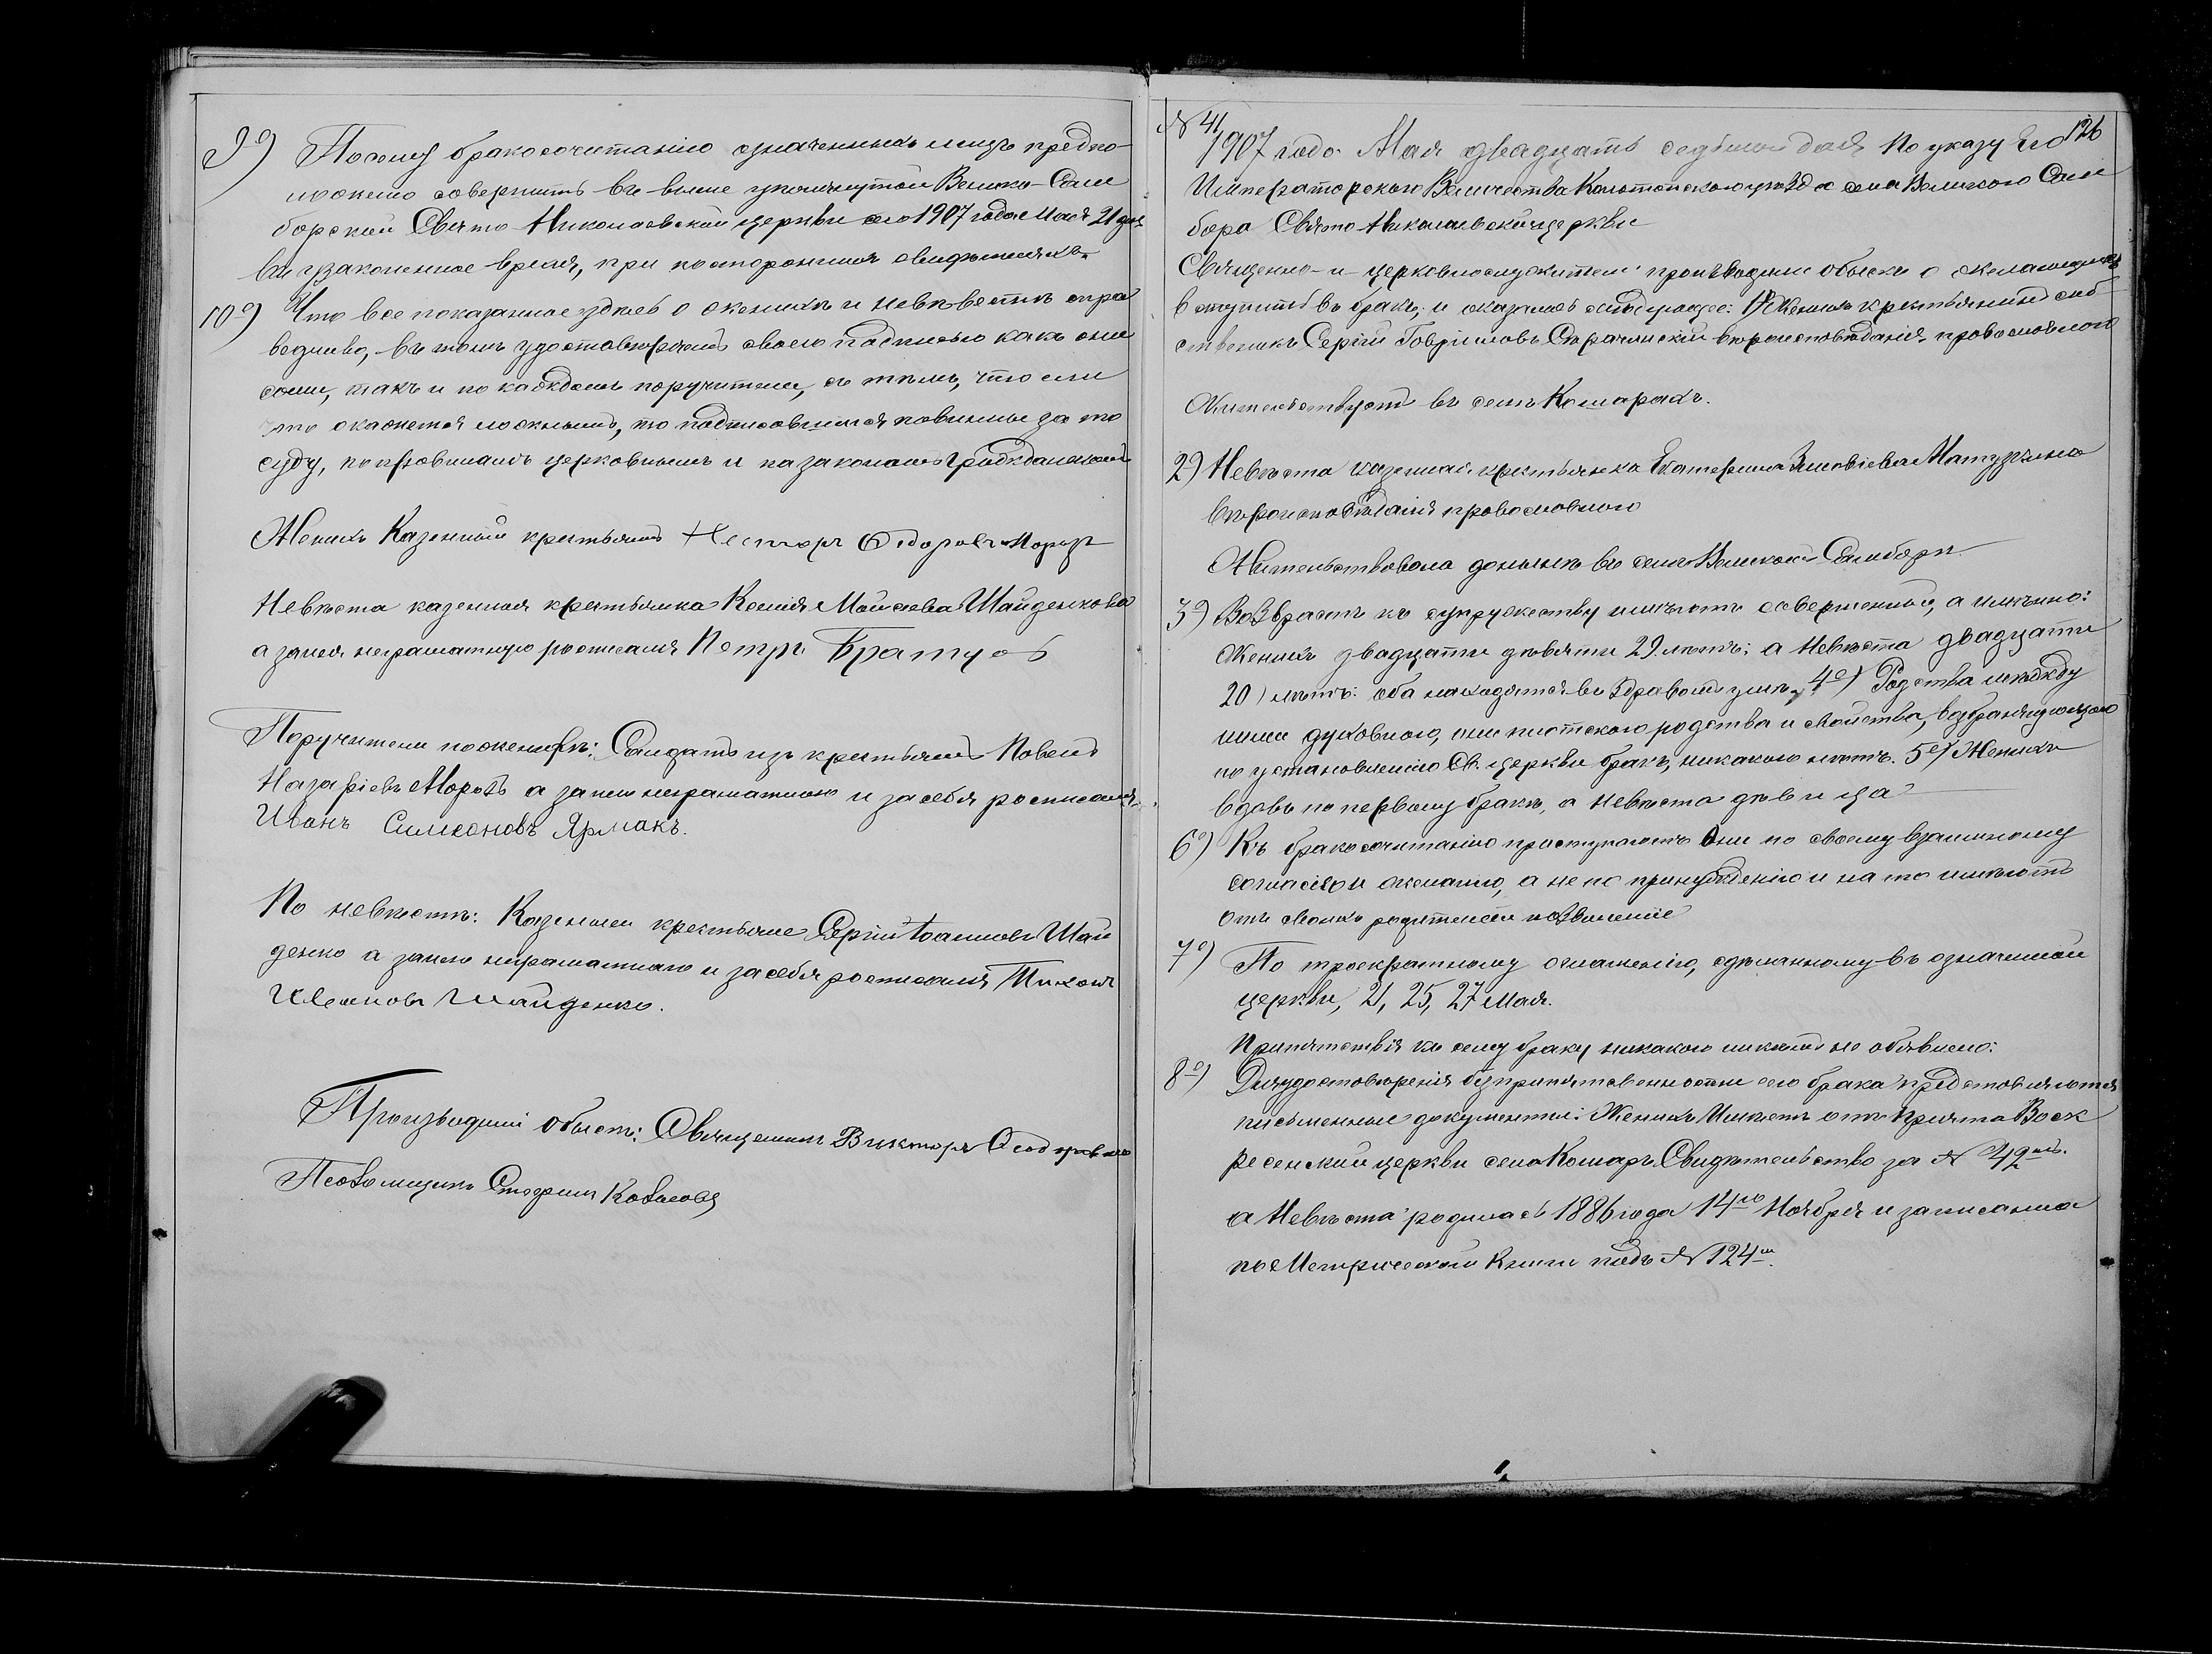 9е) Посему бракосочетанію означенныхъ лицъ предпо-
ложено совершить въ выше упомянутой Велико-Сам
борской Свято Николаевской церкви сего 1907 года Мая 21 дня
въ узаконенное время, при постороннихъ свидѣтеляхъ
10е) Что все показанное здѣсь о женихѣ и невѣстѣ спра
ведливо, въ томъ удостовѣряютъ своею подписью какъ они
сами, такъ и по каждомъ поручители, съ тѣмъ, что если
что окажется ложнымъ, то подписавшіися повинны за то
суду, по правиламъ церковнымъ и по законамъ гражданскимъ
Женихъ Казенный крестьянинъ Несторъ Ѳедоровъ Морозъ
Невѣста казенная крестьянка Ксенія Моисеева Шайденкова
а за нея неграмотную росписался Петръ Братусъ
Поручители по женихѣ: Солдатъ изъ крестьянъ Павелъ
Назаріевъ Морозъ а за него неграмотнаго и за себя росписался
Иванъ Симеоновъ Ярмакъ.
По невѣстѣ: Казенныи крестьяне Сергій Іоанновъ Шай
денко а за него неграмотнаго и за себя росписался Тихонъ
Ивановъ Шайденко.
Производили обыскъ: Священникъ Викторъ
Псаломщикъ Стефанъ
№ 41 126
1907 года Мая двадцать седьмой дня По указу Его
Императорскаго Величества Конотопскаго уѣзда села Великаго Сам
бора Свято Николаевской церкви
Священно-и-церковнослужители производили обыскъ о желающихъ
вступить въ бракъ, и оказалось слѣдующее: 1) Женихъ крестьянинъ соб
ственикъ Сергій Гавріиловъ вѣроисповѣданія православнаго
Жительствуетъ въ селѣ Кошарахъ.
2) Невѣста казенная крестьянка Екатерина Зиновіева
вѣроисповѣданія православнаго
Жительствовала донынѣ въ селѣ Великомъ Самборѣ
3е) Возврастъ къ супружеству имѣютъ совершенный, а имѣнно:
Женихъ двадцати девяти 29. лѣтъ: а Невѣста двадцати
20) лѣтъ: оба находятся въ здравомъ умѣ, 4е) Родства между
ними духовного, или плотского родства и свойства, возбраняющаго
по установленію Св. церкви бракъ, никакого нѣтъ. 5е) Женихъ
вдовъ по первому бракѣ, а Невѣста дѣвица
6е) Къ бракосочетанію приступаютъ Они по своему взаимному
согласію и желанію, а не по принужденію и на то имѣютъ
отъ своихъ родителей позволеніе
7е) По троекратному оглашенію, сдѣланному въ означенной
церкви, 21, 25, 27 Мая.
Припятствія къ сему браку никакого никѣмъ не обявлено:
8е) Для удостовѣренія безприпятственности сего брака представляются
письменные документы: Женихъ Имѣетъ отъ причта Воск
ресенский церкви села Кошаръ Свидѣтельство за № 42мъ.
а Невѣста родилась 1886 года 14го Ноября и записанна
по Метрической Книги подъ № 124м.